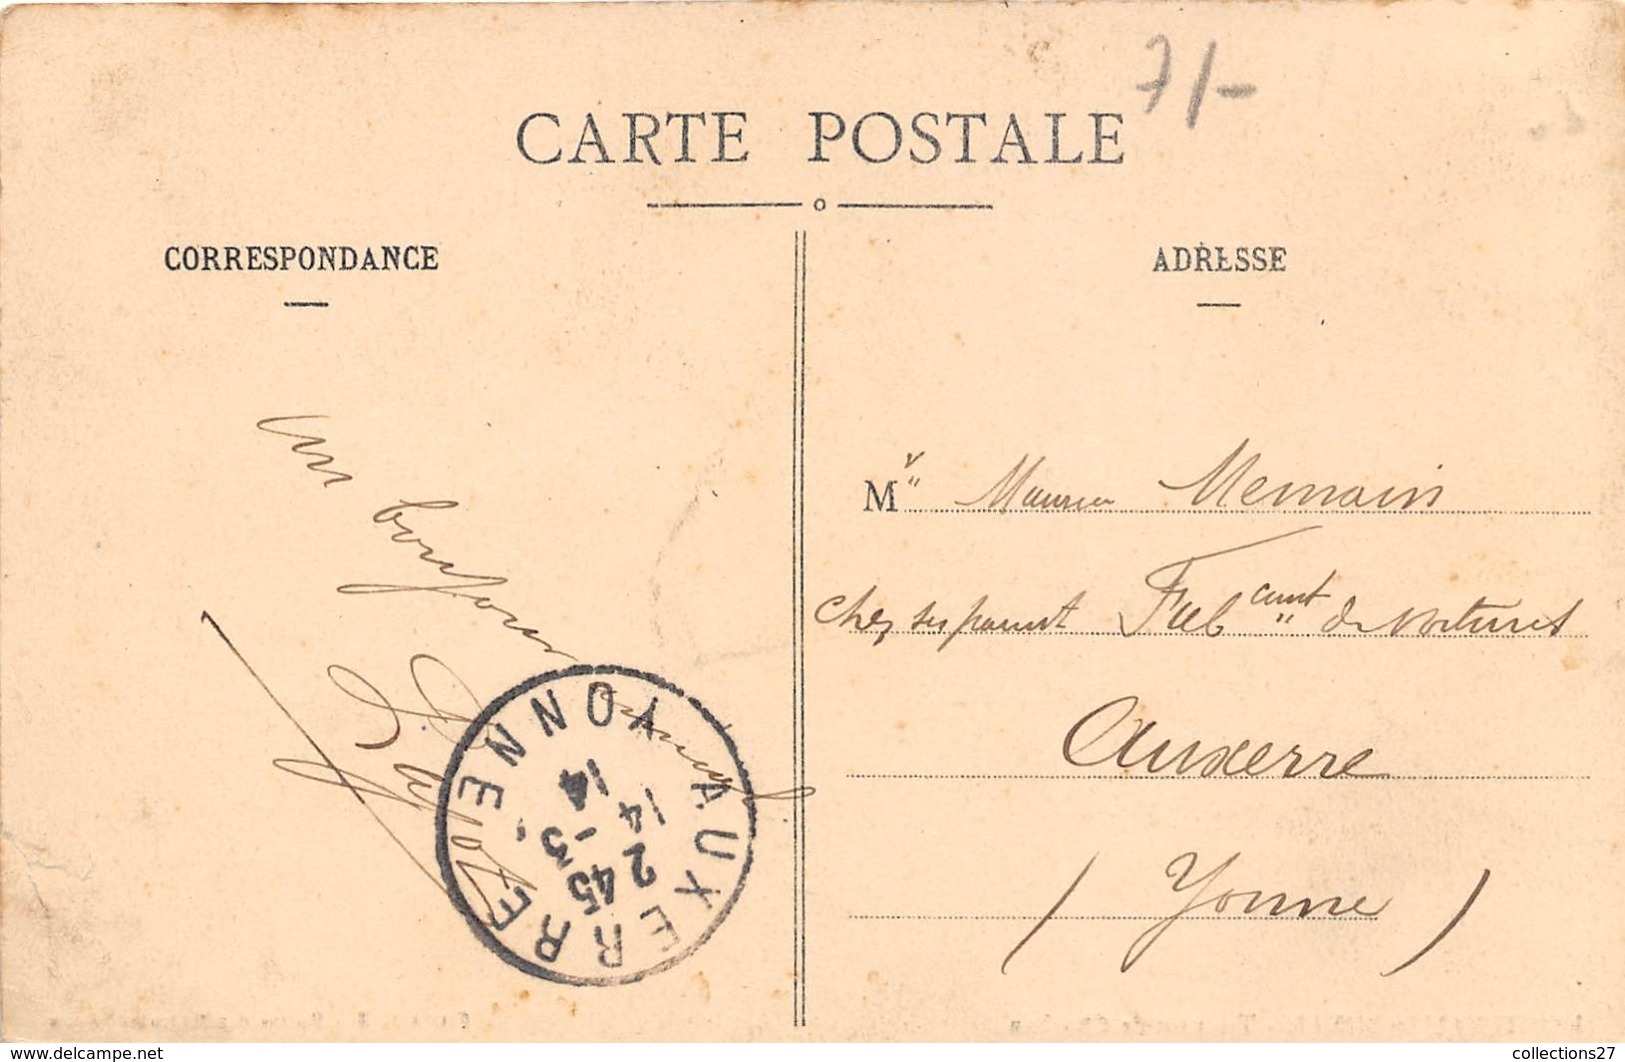 7/-
CARTE POSTALE
CORRESPONDANCE
ADRESSE
un bonjour
AUXERRE YONNE
14 45
2 -3
14 14
Mr Maurice Memain
chez ses parents Fabcant de voitures
Auxerre
(Yonne)
www.delcampe.net
collections27